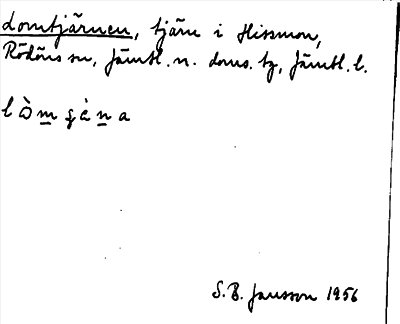 Lomtjärnen, tjärn i Hissmon,
Rödöns sn, Jämtl. n. doms. tg, Jämtl. l.
S. B. Jansson 1956